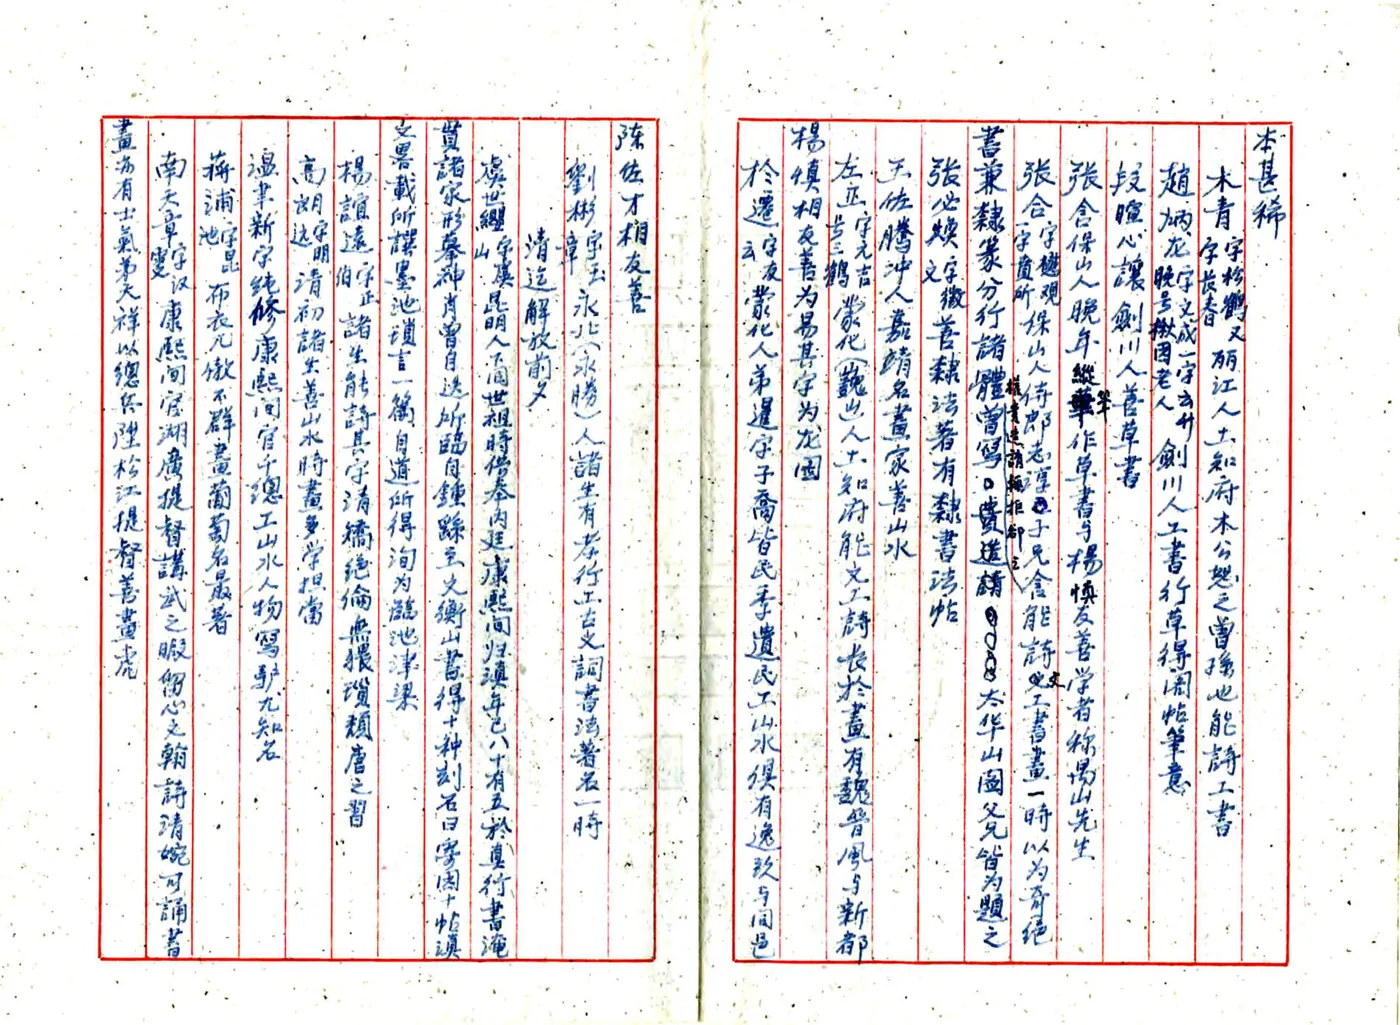 本甚稀
木青字松鶴又字長春丽江人土知府木公恕之曾孫也能詩工書
趙炳龙字文成一字云升晚号楸園老人劍川人工書行草得閣帖筆意
段暄心讓劍川人善草書
張含保山人晚年縱筆作草書与楊慎友善学者称禺山先生
張合字懋观一字賁所保山人侍郎志淳子兄含能詩文工書畫一時以为奇绝
書兼隸篆分行諸體曾寫太华山圖父兄皆为題之
權貴造請輒拒却之
張必焕字徵文善隸法著有隸書法帖
王佐騰冲人嘉靖名畫家善山水
左正字元吉号三鹤蒙化(巍山)人土知府能文工詩长於畫有魏晉風与新都
楊慎相友善为易其字为龙園
於遷字友云蒙化人弟暹字子喬皆民季遺民工山水俱有逸致与同邑
陈佐才相友善
劉彬字玉章永北(永勝)人諸生有孝行工古文詞書法著名一時
清迄解放前夕
虞世瓔字虞山昆明人顺世祖時供奉内廷康熙间归滇年已八十有五於真行書淹
貫諸家形摹神肖曾自选所临自鍾繇至文衡山書得十种刻石曰寄園十帖滇
文畧載所譔墨池瑣言一篇自道所得洵为臨池津梁
楊誼遠字正伯諸生能詩其字清矯绝倫無猥瑣頹唐之習
高朗字明达清初諸生善山水時畫多学担當
温聿新字純修康熙间官千總工山水人物寫驴尤知名
蒋浦字昆池布衣兀傲不群畫葡萄名最著
南天章字汉雯康熙间官湖廣提督講武之暇留心文翰詩清婉可誦書
畫亦有士氣弟天祥以總兵陞松江提督善畫虎